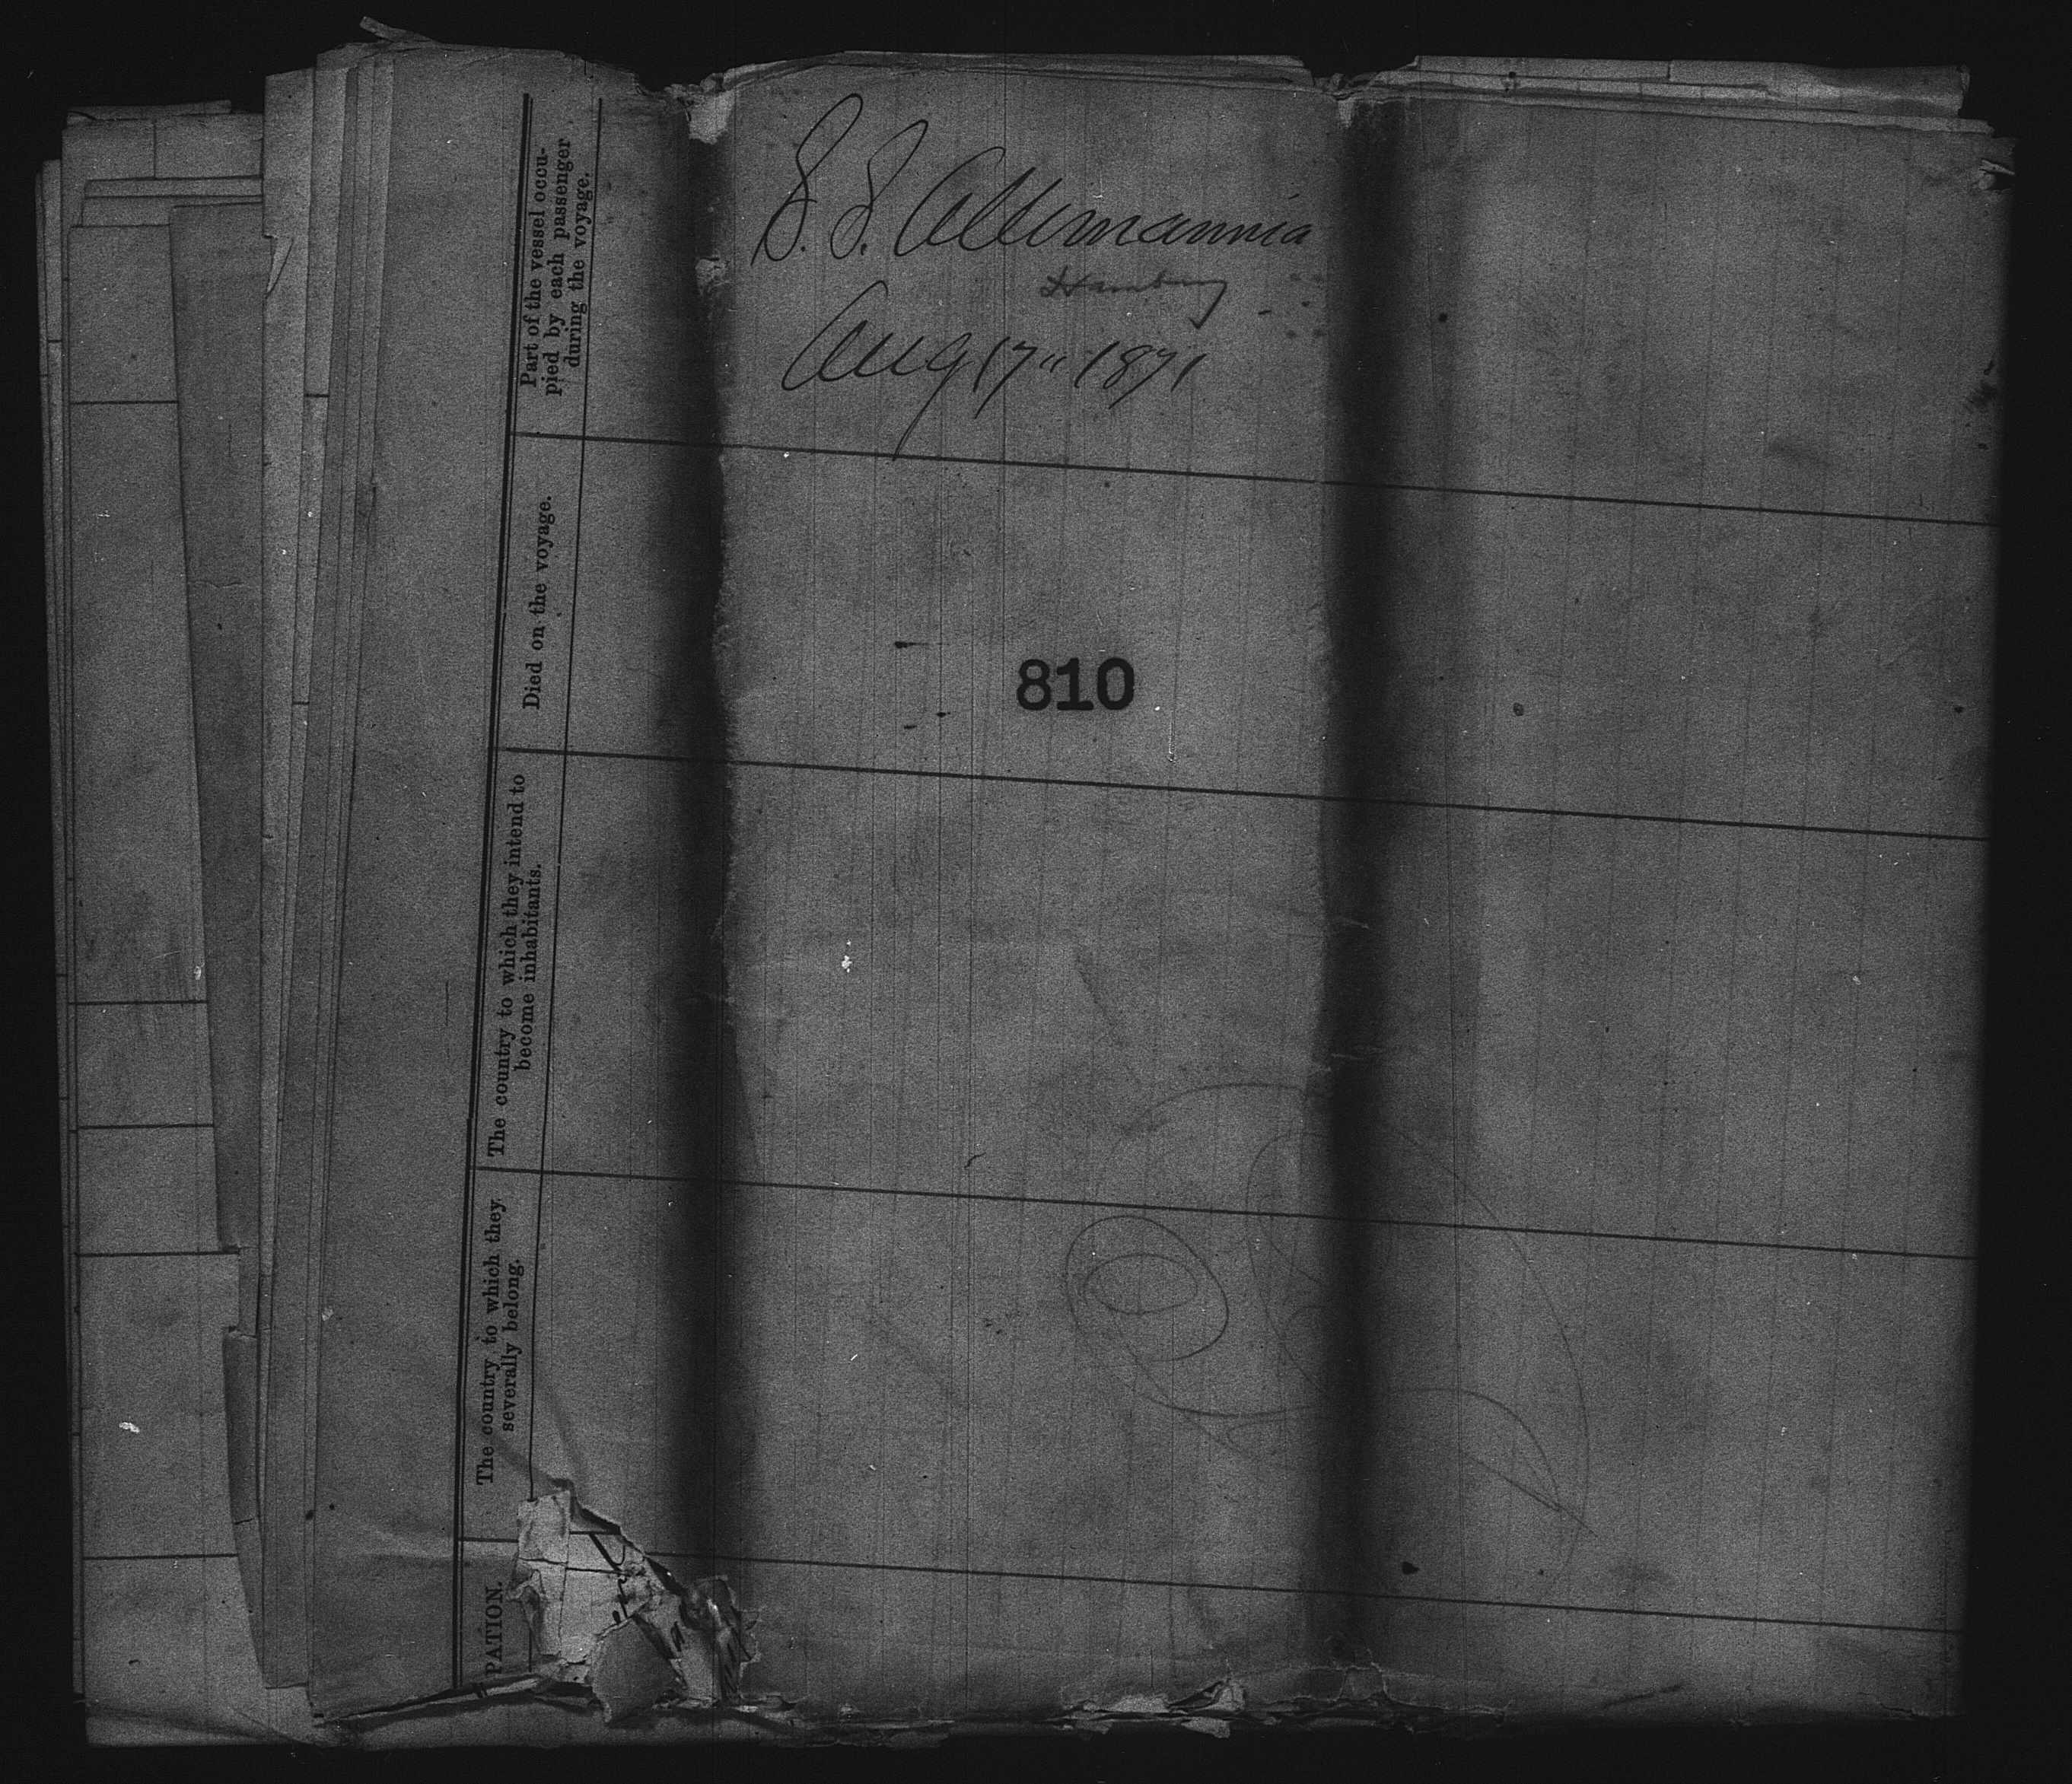 S. S. Allemannia
Hamburg
Aug 17" 1871
810
Part of the vessel occu-
pied by each passenger
during the voyage.
Died on the voyage.
The country to which they intend to
become inhabitants.
The country to which they
severally belong.
PATION.